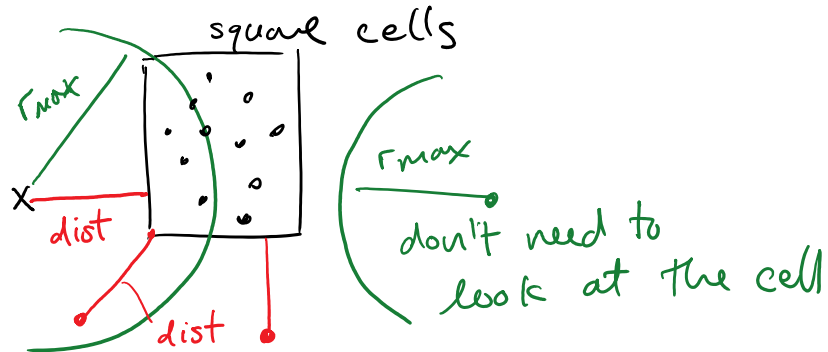 square cells
rmax
X
dist
dist
rmax
don't need to
look at the cell